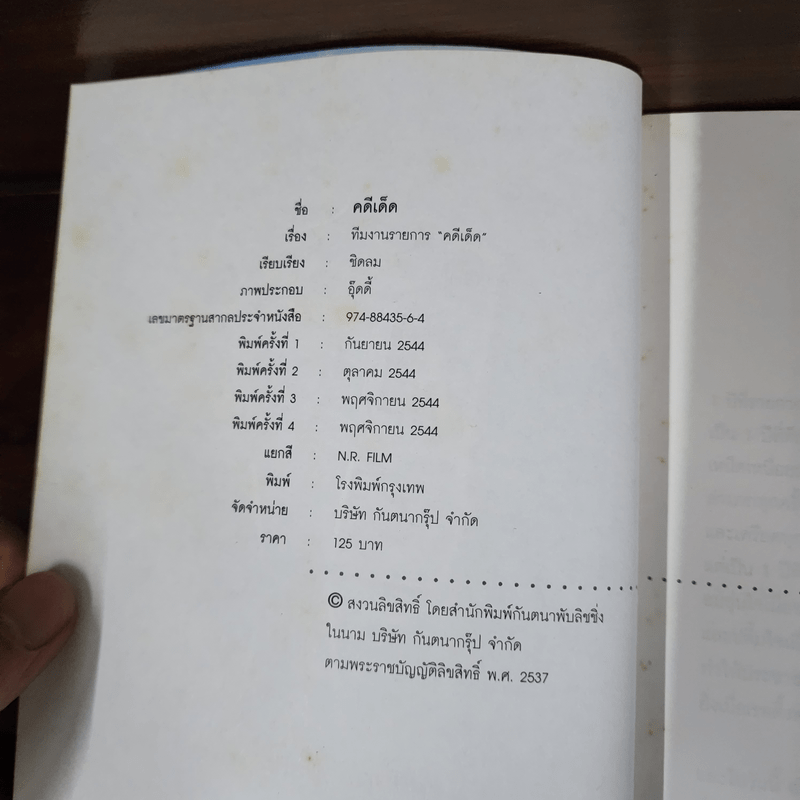 ชื่อ : คดีเด็ด
เรื่อง : ทีมงานรายการ "คดีเด็ด"
เรียบเรียง : ชิดลม
ภาพประกอบ : อุ๊ดดี้
เลขมาตรฐานสากลประจำหนังสือ : 974-88435-6-4
พิมพ์ครั้งที่ 1 : กันยายน 2544
พิมพ์ครั้งที่ 2 : ตุลาคม 2544
พิมพ์ครั้งที่ 3 : พฤศจิกายน 2544
พิมพ์ครั้งที่ 4 : พฤศจิกายน 2544
แยกสี : N.R. FILM
พิมพ์ : โรงพิมพ์กรุงเทพ
จัดจำหน่าย : บริษัท กันตนากรุ๊ป จำกัด
ราคา : 125 บาท
© สงวนลิขสิทธิ์ โดยสำนักพิมพ์กันตนาพับลิชชิ่ง
ในนาม บริษัท กันตนากรุ๊ป จำกัด
ตามพระราชบัญญัติลิขสิทธิ์ พ.ศ. 2537